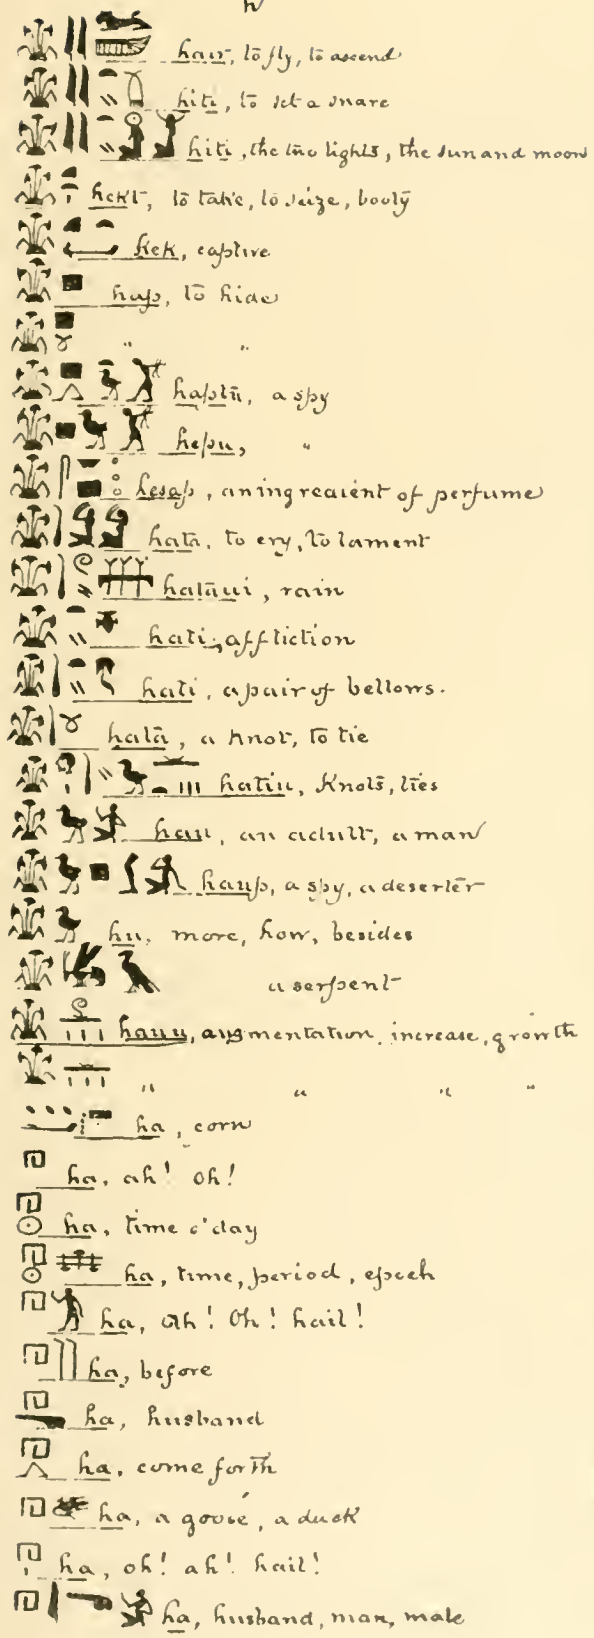 h
hair, to fly, to ascend
hiti, to set a snare
hiti, the two lights, the sun and moon
hekt, to take, to seize, booty
hek, captive
hap, to hide
" "
haptu, a spy
hepu, "
hesap, an ingredient of perfume
hata, to cry, to lament
hataui, rain
hati, affliction
hati, a pair of bellows.
hata, a knot, to tie
hatiu, knots, ties
hau, an adult, a man
haup, a spy, a deserter
hu, more, how, besides
a serpent
hauu, augmentation, increase, growth
" " " "
ha, corn
ha, ah! oh!
ha, time o'day
ha, time, period, epoch
ha, ah! Oh! hail!
ha, before
ha, husband
ha, come forth
ha, a goose, a duck
ha, oh! ah! hail!
ha, husband, man, male